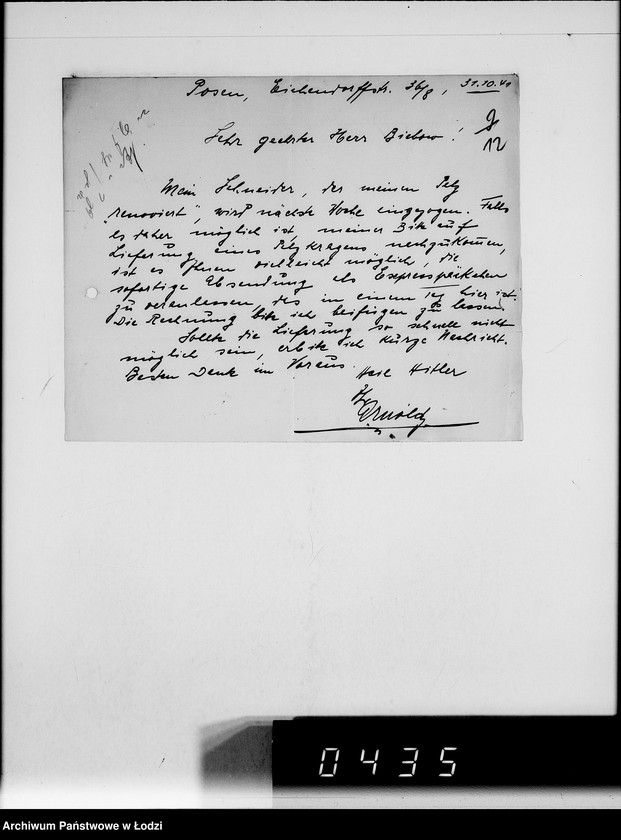 Posen, Eichendorffstr. 36/8, 31.10.41
Sehr geehrter Herr Biebow!
12
Mein Schneider, der meinen Pelz
"renoviert", wird nächste Woche eingezogen. Falls
es daher möglich ist, meiner Bitte auf
Lieferung eines Pelzkragens nachzukommen,
ist es Ihnen vielleicht möglich, die
sofortige Absendung als Expresspäckchen
zu veranlassen, das in einem Tag hier ist.
Die Rechnung bitte ich beifügen zu lassen.
Sollte die Lieferung so schnell nicht
möglich sein, erbitte ich kurze Nachricht.
Besten Dank im Voraus.
Heil Hitler
0435
Archiwum Państwowe w Łodzi